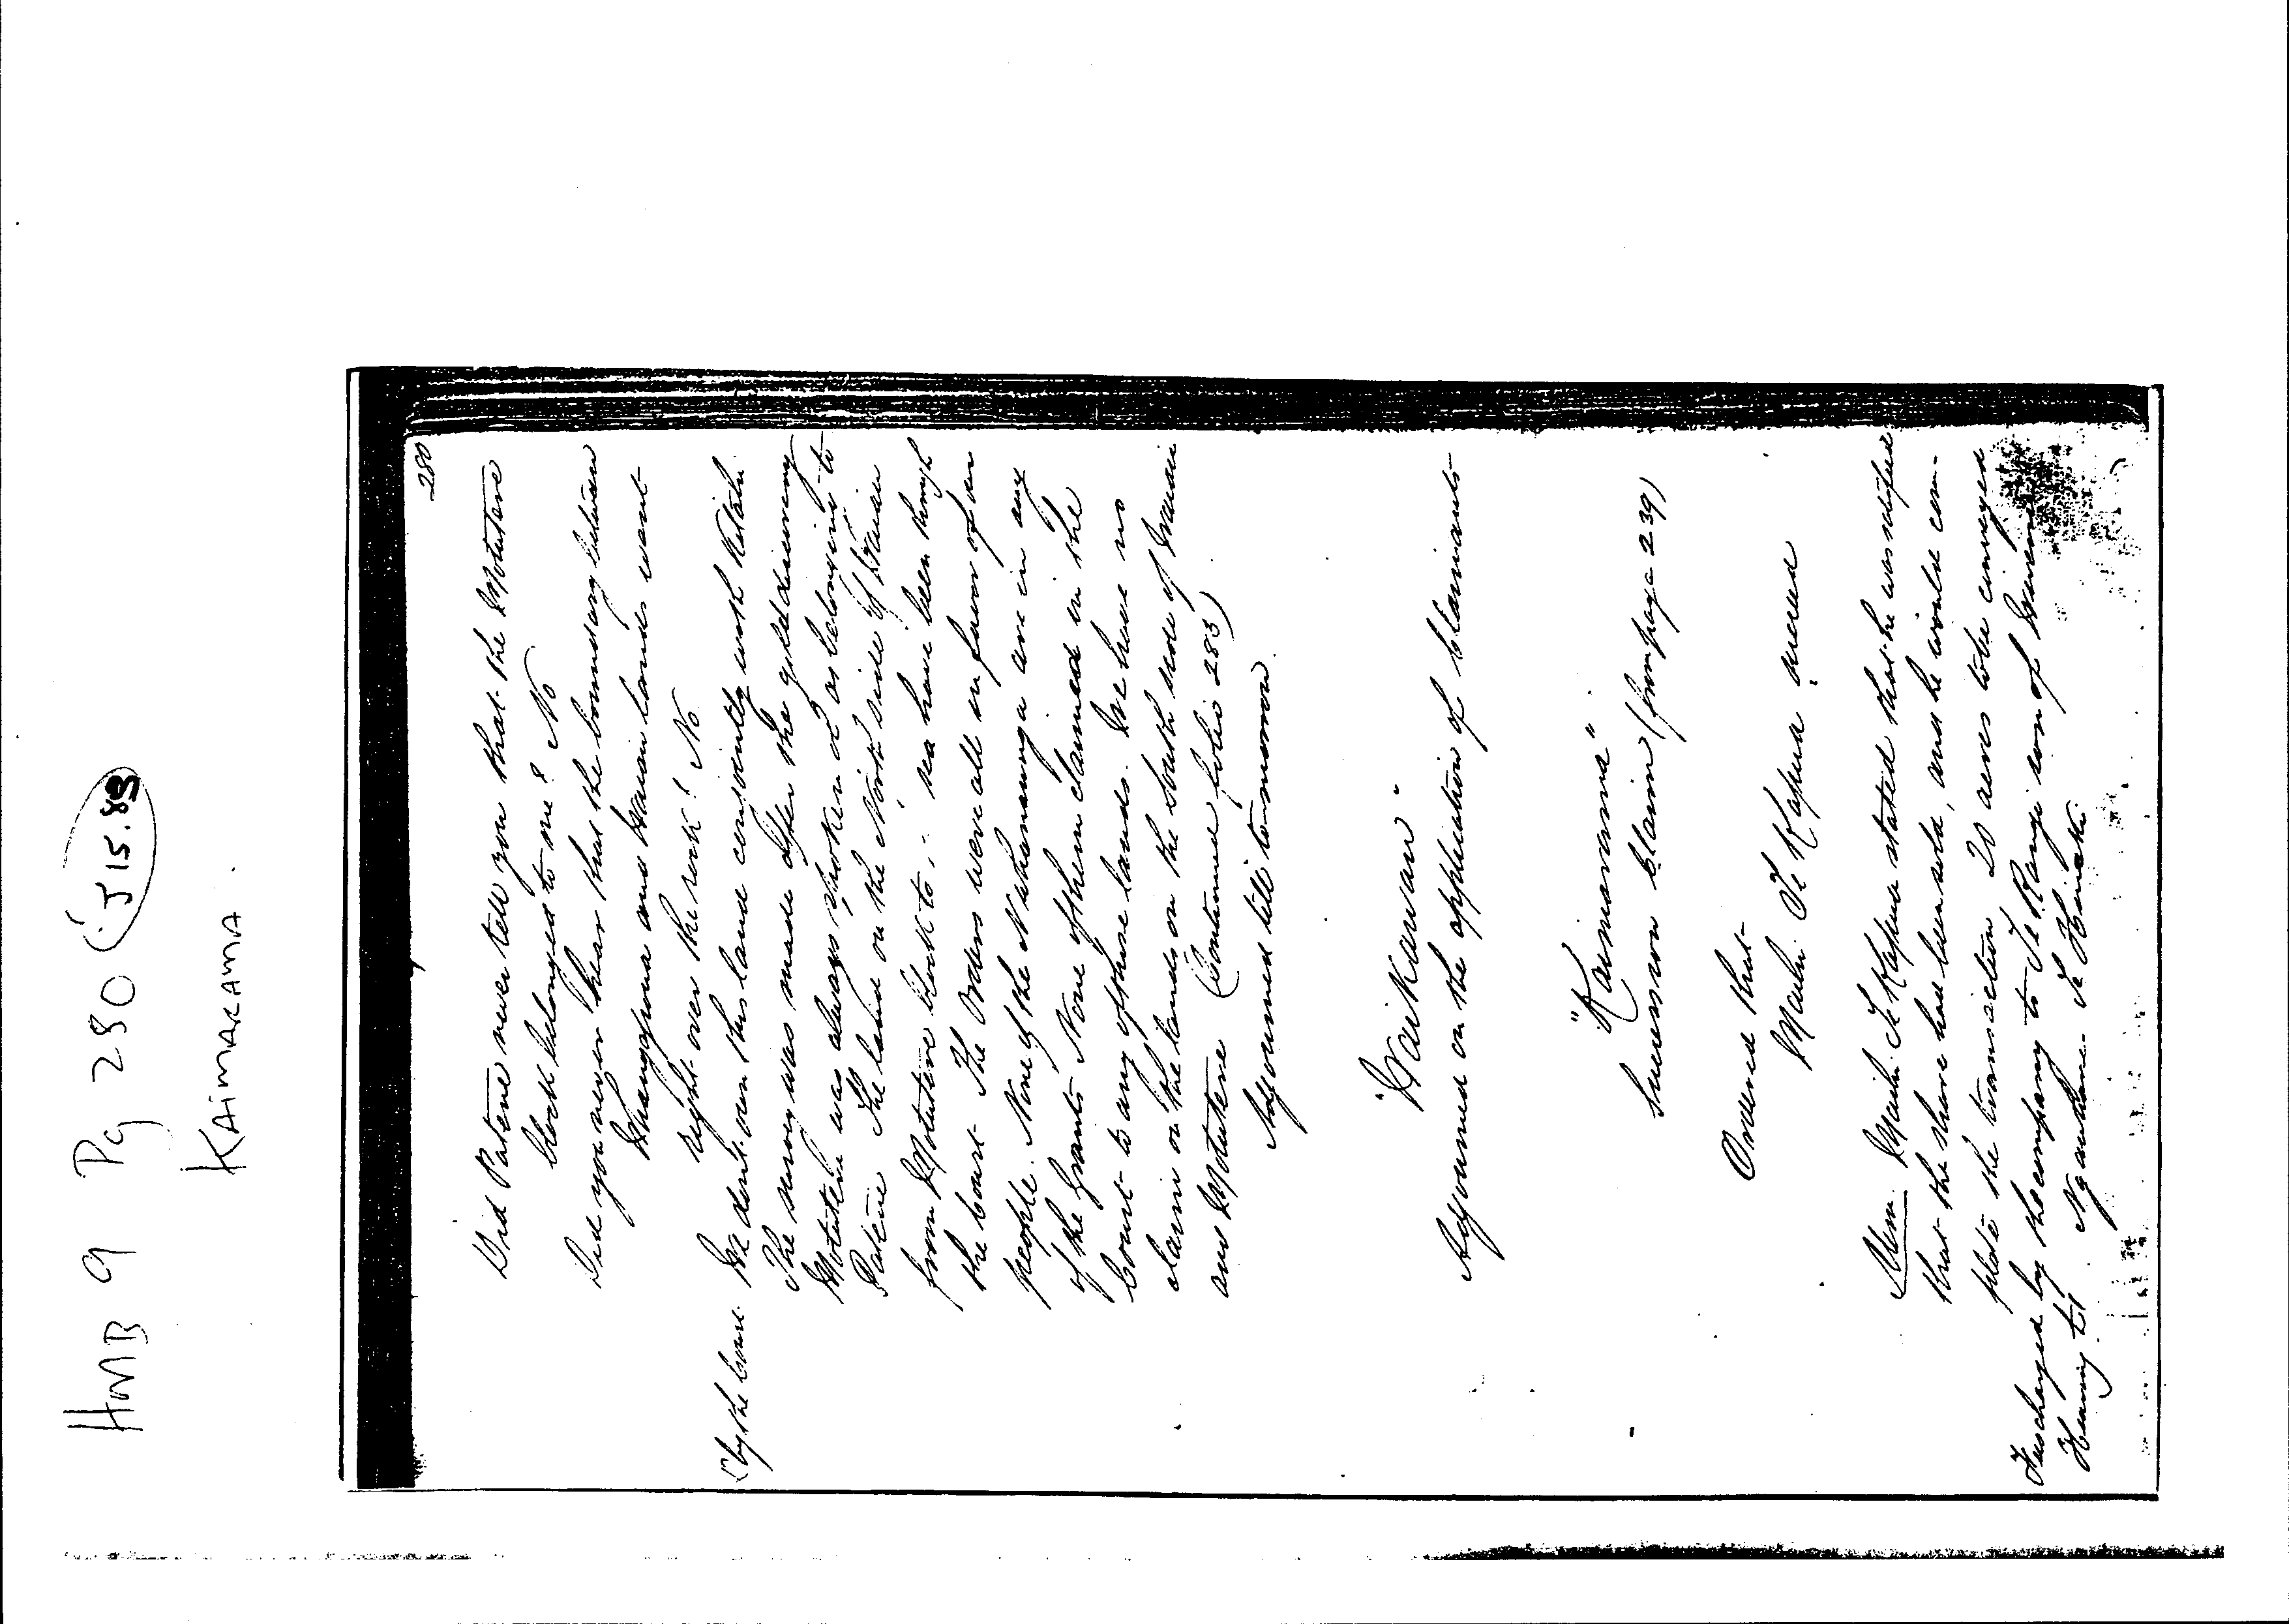 HMB 9 Pg 280 (J15.89
KAIMARAMA.
280
Did Patene never tell you that the Motutere
block belonged to me? No
Did you never hear that the boundary between
Whangapoua and Waiau lands went
right over the rock? No
(by the Court. We don't own this land conjointly with
The survey was made after the gold discovery
Motutere was always spoken of as belonging to
Patene The land on the North side of Waiau
from Motutere block to, - sea have been through
the Court - The Orders were all in favor of our
people. None of the are in any
of the Grants None of them claimed in the
Court to any of these lands. We have no
claim on the lands on the South side of Waiau
and Motutere (Continued folio 283)
Adjourned till tomorrow.
"Waikawau"
Adjourned on the application of Claimants
"Kaimarama"
Succession Claim (from page 239)
Ordered that
Te Kapua succeed
Mem. Te Kapua stated that he was satisfied
that the share had been sold, and he would com-
plete the transaction, 20 acres to be conveyed
by the company to Te Rangi son of
Hearing of